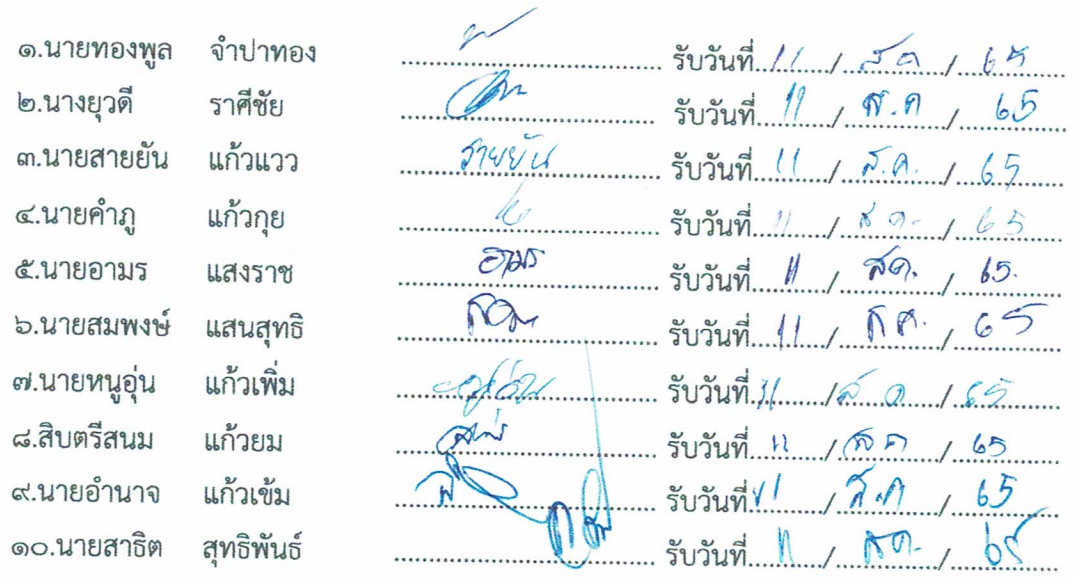 ๑.นายทองพูล จำปาทอง ............ รับวันที่ 11 / สค / 65
๒.นางยุวดี ราศีชัย ............ รับวันที่ 11 / ส.ค / 65
๓.นายสายยัน แก้วแวว สายยัน รับวันที่ 11 / ส.ค. / 65
๔.นายคำภู แก้วกุย ............ รับวันที่ 11 / สค. / 65
๕.นายอามร แสงราช อามร รับวันที่ 11 / สค. / 65.
๖.นายสมพงษ์ แสนสุทธิ ............ รับวันที่ 11 / สค. / 65
๗.นายหนูอุ่น แก้วเพิ่ม ............ รับวันที่ 11 / สค / 65
๘.สิบตรีสนม แก้วยม ............ รับวันที่ 11 / สค / 65
๙.นายอำนาจ แก้วเข้ม ............ รับวันที่ 11 / ส.ค / 65
๑๐.นายสาธิต สุทธิพันธ์ ............ รับวันที่ 11 / สค. / 65